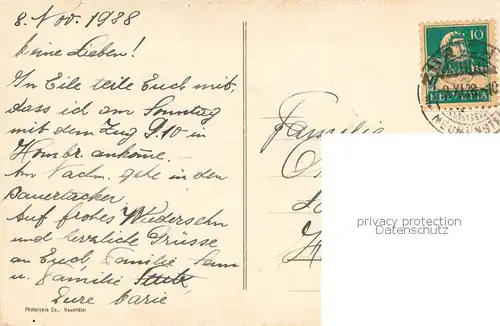 8. Nov. 1928
Meine Lieben!
In Eile teile Euch mit,
dass ich am Sonntag
mit dem Zug 9.10 in
Hombr. ankome. –
Am Nachm. gehe in den
Bauertacker.
Auf frohes Wiedersehn
und herzliche Grüsse
an Euch, Familie
u. Familie
Eure Marie
Photolypie Co., Neuchâtel
10
HELVETIA
Familie
privacy protection
Datenschutz